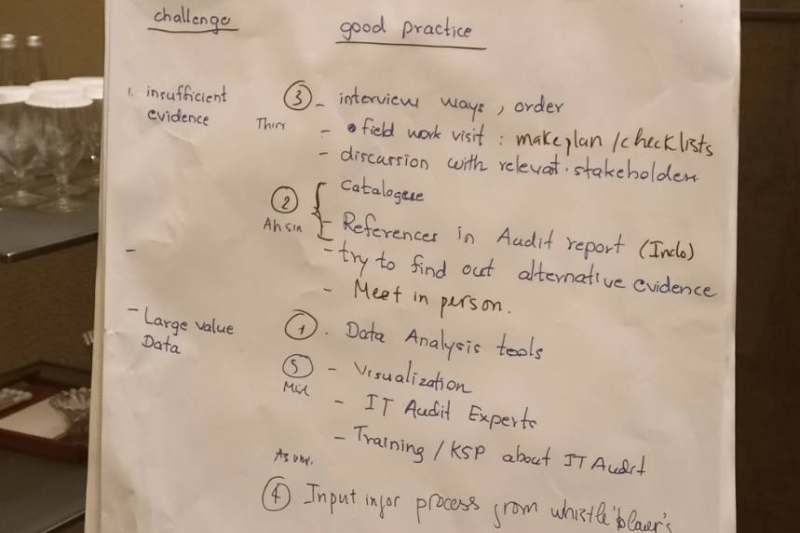 challenge good practice
1. insufficient evidence
③ - interview ways, order
- field work visit : make plan / checklists
- discussion with relevat stakeholders
② Catalogue
Ah sin - References in Audit report (Indo)
- try to find out alternative evidence
- Meet in person.
- Large value Data
① . Data Analysis tools
⑤ - Visualization
- IT Audit Experts
- Training / KSP about IT Audit
④ Input infor process from whistle blower's